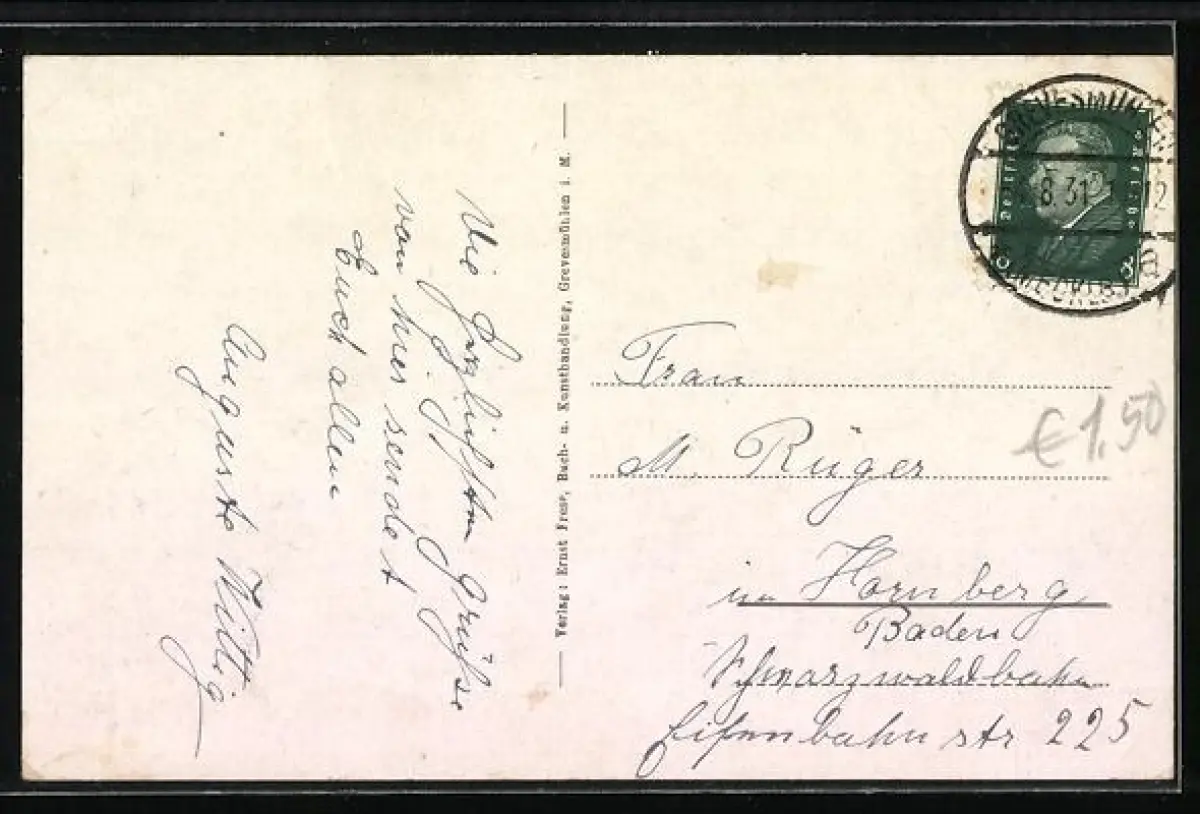 Die herzlichsten Grüße
von hier sendet
Euch allen
Auguste Wittig
Verlag: Ernst Frese, Buch- u. Kunsthandlung, Grevesmühlen i. M.
GREVESMÜHLEN
8.31
12
(MECKLB)
Deutsches Reich
8 8
Frau
M. Rüger
in Hornberg
Baden
Schwarzwaldbahn
Eisenbahnstr 225
€ 1.50